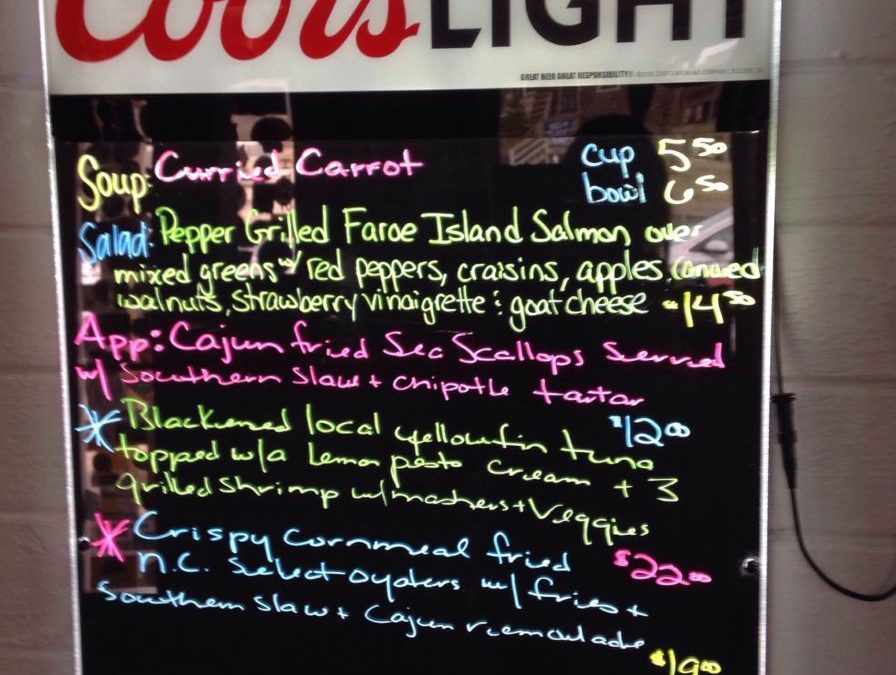 Coors LIGHT
GREAT BEER GREAT RESPONSIBILITY
Soup: Curried Carrot cup 5 50
bowl 6 50
Salad: Pepper Grilled Faroe Island Salmon over
mixed greens w/ red peppers, craisins, apples, candied
walnuts, strawberry vinaigrette & goat cheese $14 50
App: Cajun fried Sea Scallops Served
w/ Southern Slaw + chipotle tartar
$12 00
* Blackened local yellowfin tuna
topped w/a Lemon pesto cream + 3
grilled Shrimp w/mashers + Veggies
$22 00
* Crispy Cornmeal fried
n.c. Select oysters w/ fries +
Southern Slaw + Cajun remoulade
$19 00